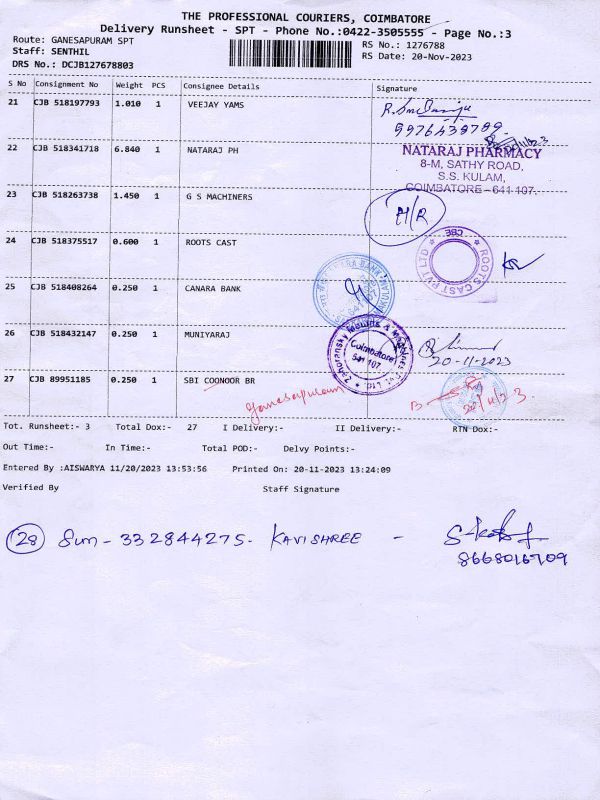 THE PROFESSIONAL COURIERS, COIMBATORE
Delivery Runsheet - SPT - Phone No.:0422-3505555 - Page No.:3
Route: GANESAPURAM SPT
RS No.: 1276788
Staff: SENTHIL
RS Date: 20-Nov-2023
DRS No.: DCJB127678803
S No Consignment No Weight PCS Consignee Details Signature
21 CJB 518197793 1.010 1 VEEJAY YAMS
9976439799
22 CJB 518341718 6.840 1 NATARAJ PH
NATARAJ PHARMACY
8-M, SATHY ROAD,
S.S. KULAM,
COIMBATORE - 641 107.
23 CJB 518263738 1.450 1 G S MACHINERS
H/R
24 CJB 518375517 0.600 1 ROOTS CAST
ROOTS CAST PVT LTD ★ CBE ★
25 CJB 518408264 0.250 1 CANARA BANK
CANARA BANK
26 CJB 518432147 0.250 1 MUNIYARAJ
Zahoransky Moulds & Machines Pvt. Ltd.
Coimbatore
641 107
20-11-2023
27 CJB 89951185 0.250 1 SBI COONOOR BR
Ganesapuram
20/11/23.
Tot. Runsheet:- 3 Total Dox:- 27 I Delivery:- II Delivery:- RTN Dox:-
Out Time:- In Time:- Total POD:- Delvy Points:-
Entered By :AISWARYA 11/20/2023 13:53:56 Printed On: 20-11-2023 13:24:09
Verified By Staff Signature
28 Sum - 332844275 - KAVISHREE -
8668016709